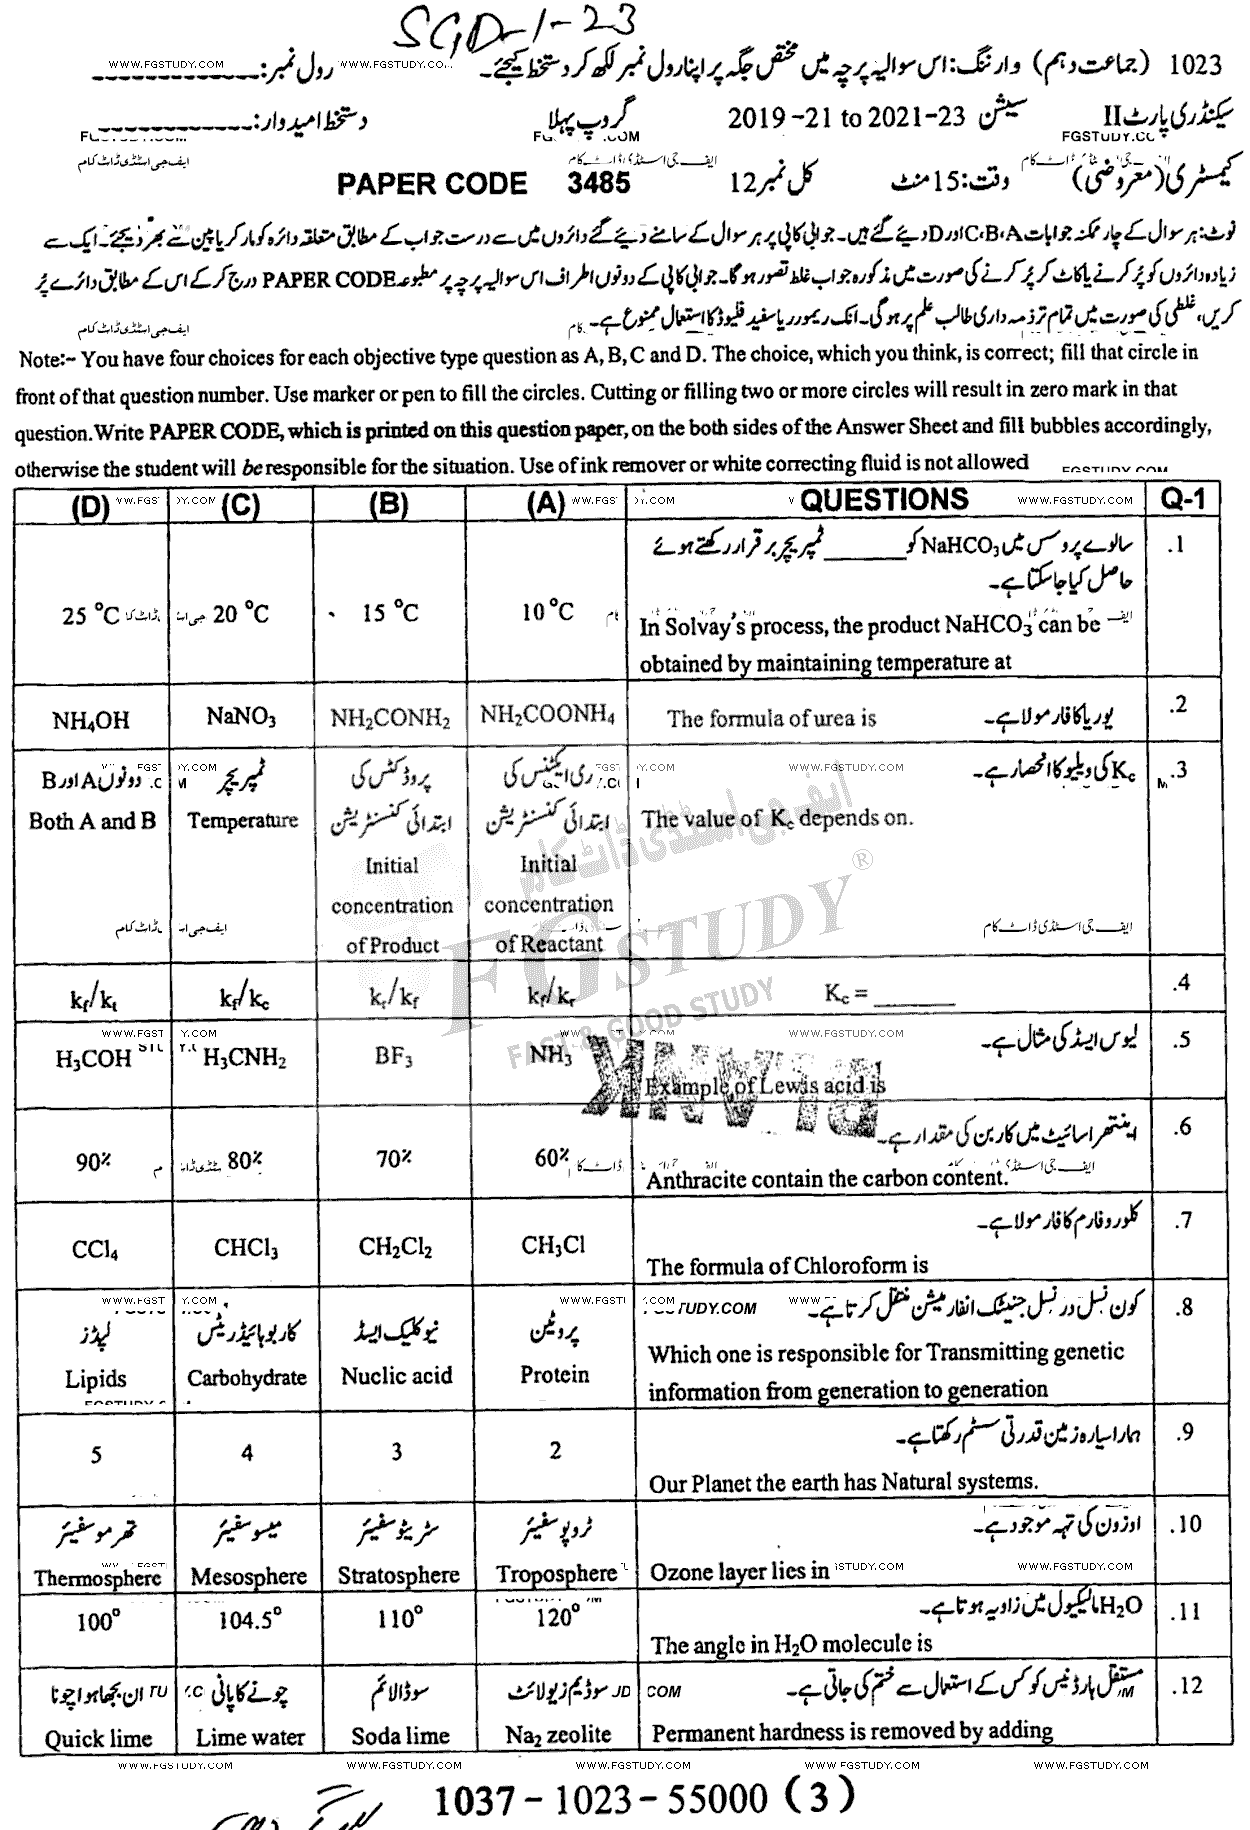 SGD-1-23
1023 (جماعت دہم) وارننگ: اس سوالیہ پرچہ میں مختص جگہ پر اپنا رول نمبر لکھ کر دستخط کیجئے۔ رول نمبر:
WWW.FGSTUDY.COM
سیکنڈری پارٹ II سیشن 2019 -21 to 2021-23 گروپ پہلا دستخط امیدوار:
FGSTUDY.COM
ایف جی اسٹڈی ڈاٹ کام
کیمسٹری (معروضی) وقت: 15 منٹ کل نمبر 12 PAPER CODE 3485
نوٹ: ہر سوال کے چار ممکنہ جوابات A،B،C اور D دیئے گئے ہیں۔ جوابی کاپی پر ہر سوال کے سامنے دیئے گئے دائروں میں سے درست جواب کے مطابق متعلقہ دائرہ کو مارکر یا پین سے بھر دیجئے۔ ایک سے
زیادہ دائروں کو پُر کرنے یا کاٹ کر پُر کرنے کی صورت میں مذکورہ جواب غلط تصور ہوگا۔ جوابی کاپی کے دونوں اطراف اس سوالیہ پرچہ پر مطبوعہ PAPER CODE درج کر کے اس کے مطابق دائرے پُر
کریں، غلطی کی صورت میں تمام تر ذمہ داری طالب علم پر ہوگی۔ انک ریموور یا سفید فلیوڈ کا استعمال ممنوع ہے۔
Note:- You have four choices for each objective type question as A, B, C and D. The choice, which you think, is correct; fill that circle in
front of that question number. Use marker or pen to fill the circles. Cutting or filling two or more circles will result in zero mark in that
question.Write PAPER CODE, which is printed on this question paper, on the both sides of the Answer Sheet and fill bubbles accordingly,
otherwise the student will be responsible for the situation. Use of ink remover or white correcting fluid is not allowed
(D) (C) (B) (A) QUESTIONS Q-1
سالوے پروسس میں NaHCO₃ کو ______ ٹمپریچر برقرار رکھتے ہوئے .1
حاصل کیا جا سکتا ہے۔
25 °C 20 °C 15 °C 10 °C
In Solvay's process, the product NaHCO₃ can be
obtained by maintaining temperature at
NH₄OH NaNO₃ NH₂CONH₂ NH₂COONH₄ The formula of urea is یوریا کا فارمولا ہے۔ .2
دونوں A اور B ٹمپریچر پروڈکٹس کی ری ایکٹنٹس کی Kc کی ویلیو کا انحصار ہے۔ .3
ابتدائی کنسنٹریشن ابتدائی کنسنٹریشن
Both A and B Temperature The value of Kc depends on.
Initial Initial
concentration concentration
of Product of Reactant
kf/kt kf/kc kr/kf kf/kr Kc = ______ .4
لیوس ایسڈ کی مثال ہے۔ .5
H₃COH H₃CNH₂ BF₃ NH₃
Example of Lewis acid is
BLANK
اینتھراسائیٹ میں کاربن کی مقدار ہے۔ .6
90% 80% 70% 60%
Anthracite contain the carbon content.
کلوروفارم کا فارمولا ہے۔ .7
CCl₄ CHCl₃ CH₂Cl₂ CH₃Cl
The formula of Chloroform is
کون نسل در نسل جنیٹک انفارمیشن منتقل کرتا ہے۔ .8
لپڈز کاربوہائیڈریٹس نیوکلیک ایسڈ پروٹین
Lipids Carbohydrate Nuclic acid Protein
Which one is responsible for Transmitting genetic
information from generation to generation
ہمارا سیارہ زمین قدرتی سسٹم رکھتا ہے۔ .9
5 4 3 2
Our Planet the earth has Natural systems.
تھرموسفیئر میسوسفیئر سٹریٹوسفیئر ٹروپوسفیئر اوزون کی تہہ موجود ہے۔ .10
Thermosphere Mesosphere Stratosphere Troposphere Ozone layer lies in
H₂O مالیکیول میں زاویہ ہوتا ہے۔ .11
100° 104.5° 110° 120°
The angle in H₂O molecule is
ان بجھا ہوا چونا چونے کا پانی سوڈا لائم سوڈیم زیولائٹ مستقل ہارڈنیس کو کس کے استعمال سے ختم کی جاتی ہے۔ .12
Quick lime Lime water Soda lime Na₂ zeolite Permanent hardness is removed by adding
WWW.FGSTUDY.COM WWW.FGSTUDY.COM WWW.FGSTUDY.COM WWW.FGSTUDY.COM WWW.FGSTUDY.COM
1037 - 1023 - 55000 (3)
ایف جی اسٹڈی ڈاٹ کام
FG STUDY ®
FAST & GOOD STUDY